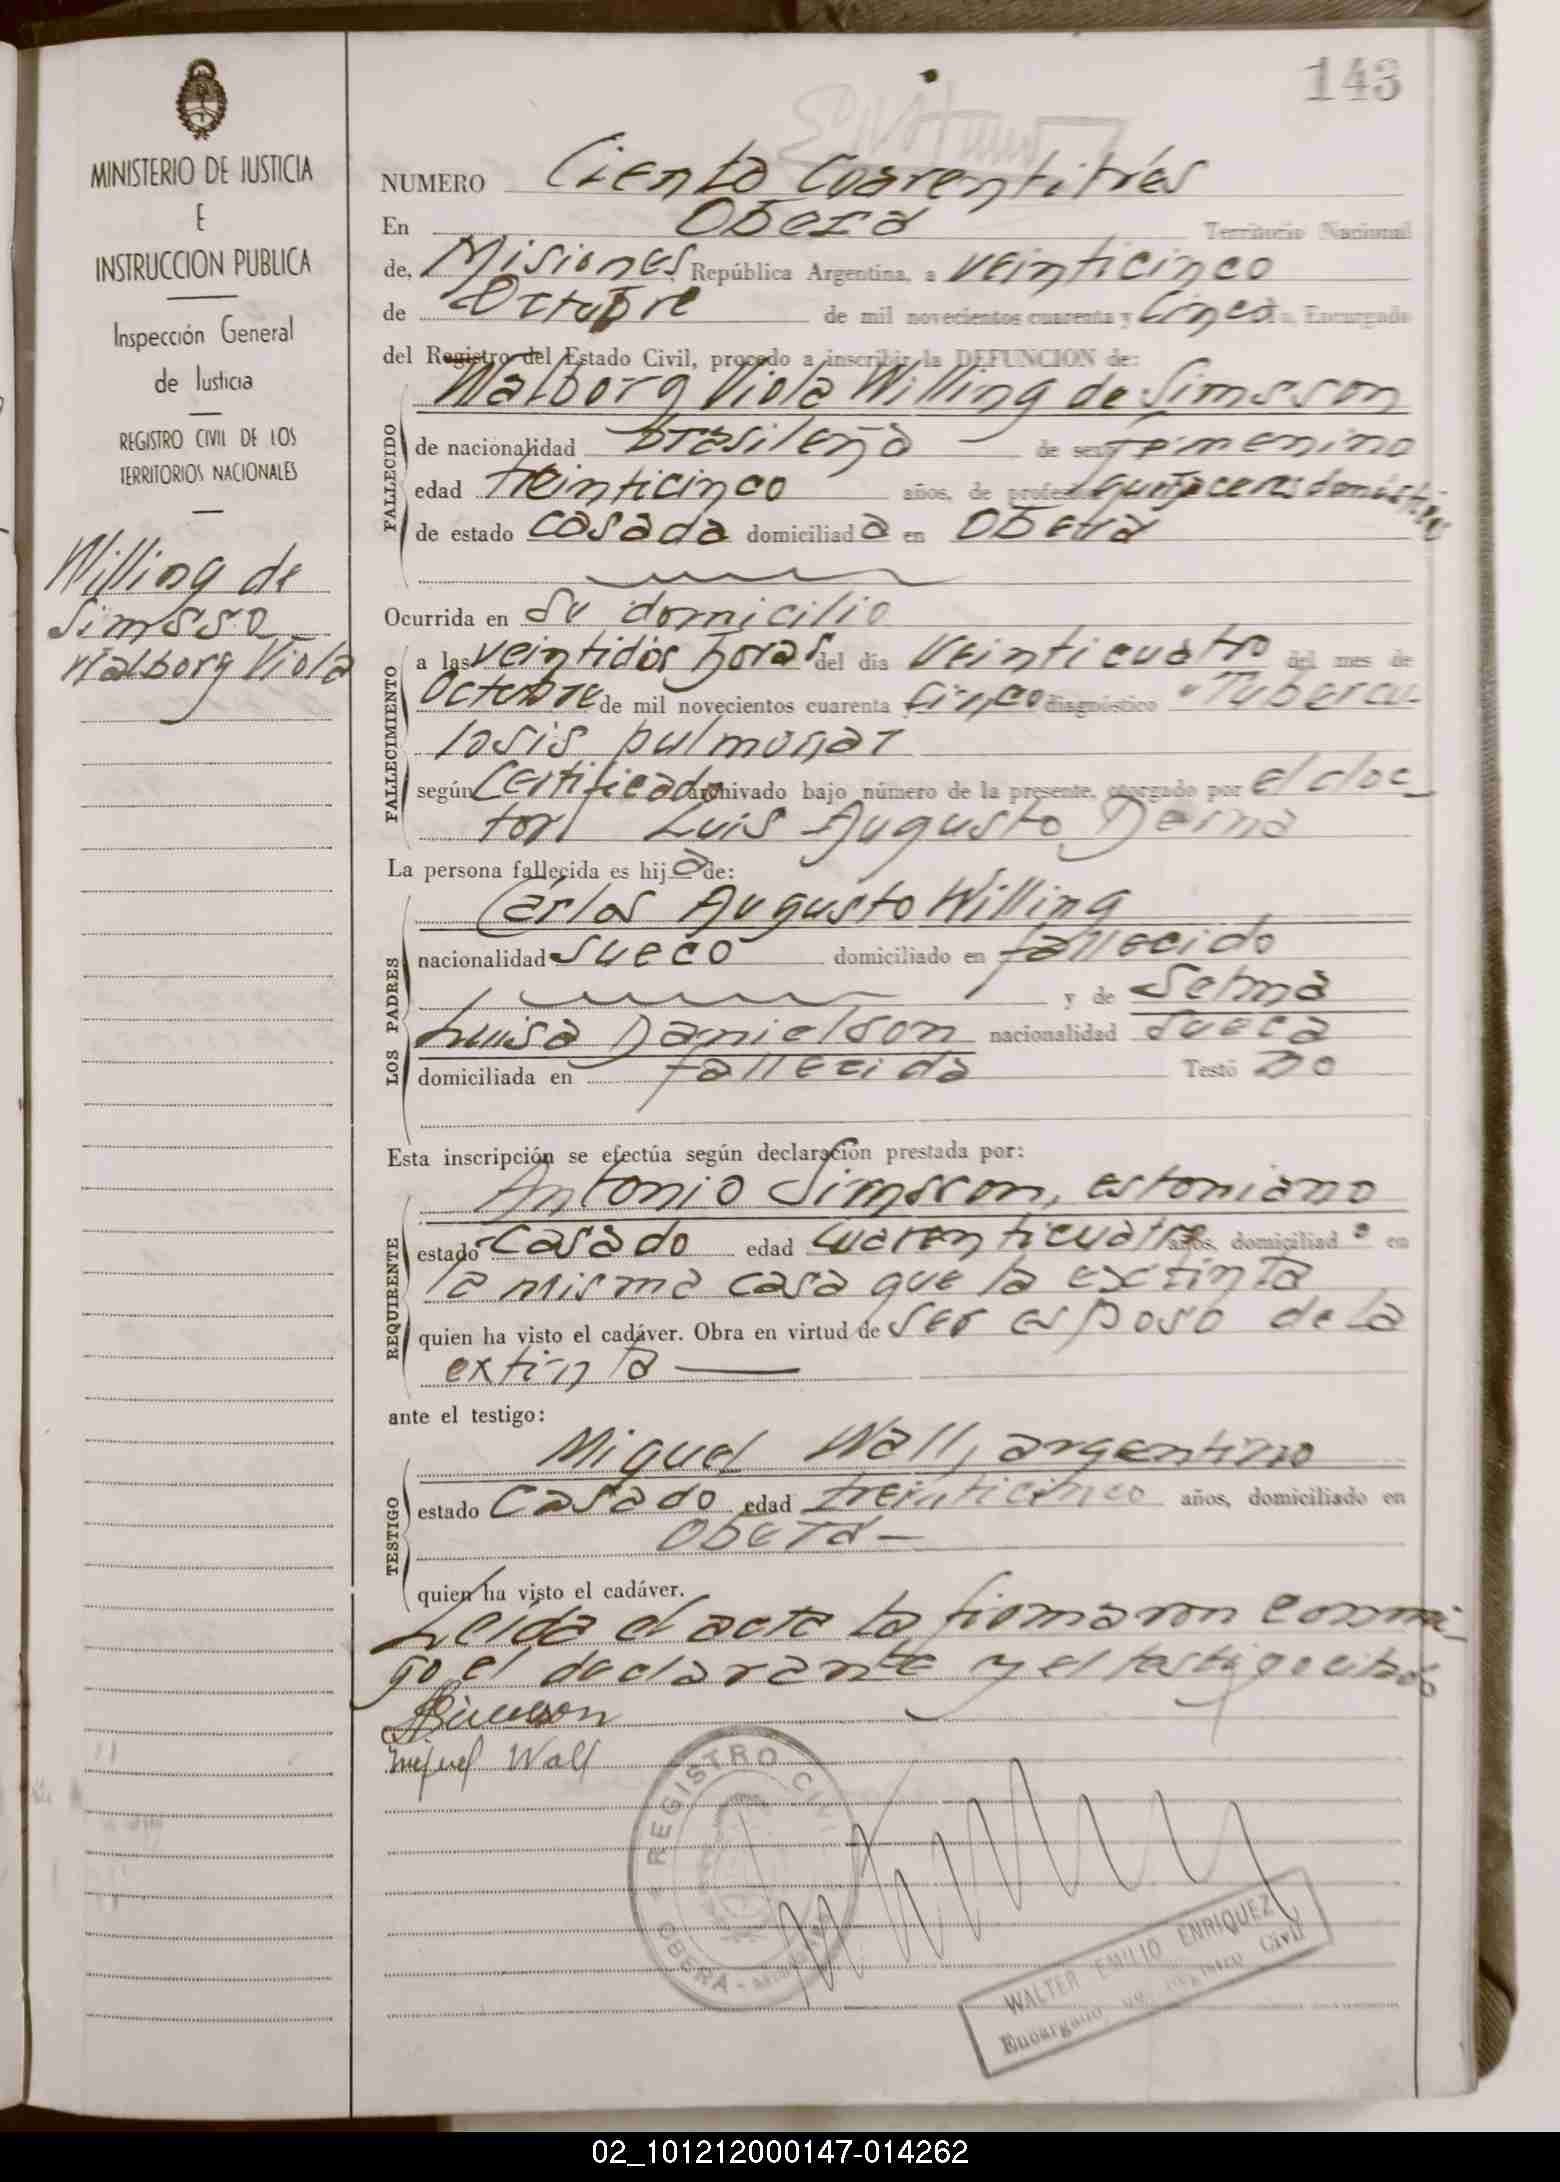 143
MINISTERIO DE JUSTICIA
E
INSTRUCCION PUBLICA
Inspección General
de Justicia
REGISTRO CIVIL DE LOS
TERRITORIOS NACIONALES
Willing de
Simsso
Walborg Viola
NUMERO Ciento Cuarentitrés
En Oberá Territorio Nacional
de, Misiones República Argentina, a veinticinco
de Octubre de mil novecientos cuarenta y Cinco Encargado
del Registro del Estado Civil, procedo a inscribir la DEFUNCION de:
Walborg Viola Willing de Simsson
FALLECIDO
de nacionalidad brasileña de sexo femenino
edad treinticinco años, de profesión quehaceres domésticos
de estado casada domiciliada en Oberá
Ocurrida en Su domicilio
FALLECIMIENTO
a las veintidós horas del día veinticuatro del mes de
Octubre de mil novecientos cuarenta y Cinco diagnóstico "Tubercu-
losis pulmonar
según Certificado archivado bajo número de la presente, otorgado por el doc-
tor Luis Augusto Derna
La persona fallecida es hija de:
LOS PADRES
Carlos Augusto Willing
nacionalidad sueco domiciliado en fallecido
y de Selma
Luisa Danielson nacionalidad sueca
domiciliada en fallecida Testó no
Esta inscripción se efectúa según declaración prestada por:
REQUIRENTE
Antonio Simsson, estoniano
estado Casado edad cuarenticuatro años, domiciliado en
la misma casa que la extinta
quien ha visto el cadáver. Obra en virtud de ser esposo de la
extinta
ante el testigo:
TESTIGO
Miguel Wall, argentino
estado Casado edad treinticinco años, domiciliado en
Oberá
quien ha visto el cadáver.
Leida el acta la firmaron conmi-
go el declarante y el testigo citado
ASimsson
Miguel Wall
REGISTRO CIVIL
OBERA - MISIONES
WALTER EMILIO ENRIQUEZ
Encargado del Registro Civil
02_101212000147-014262